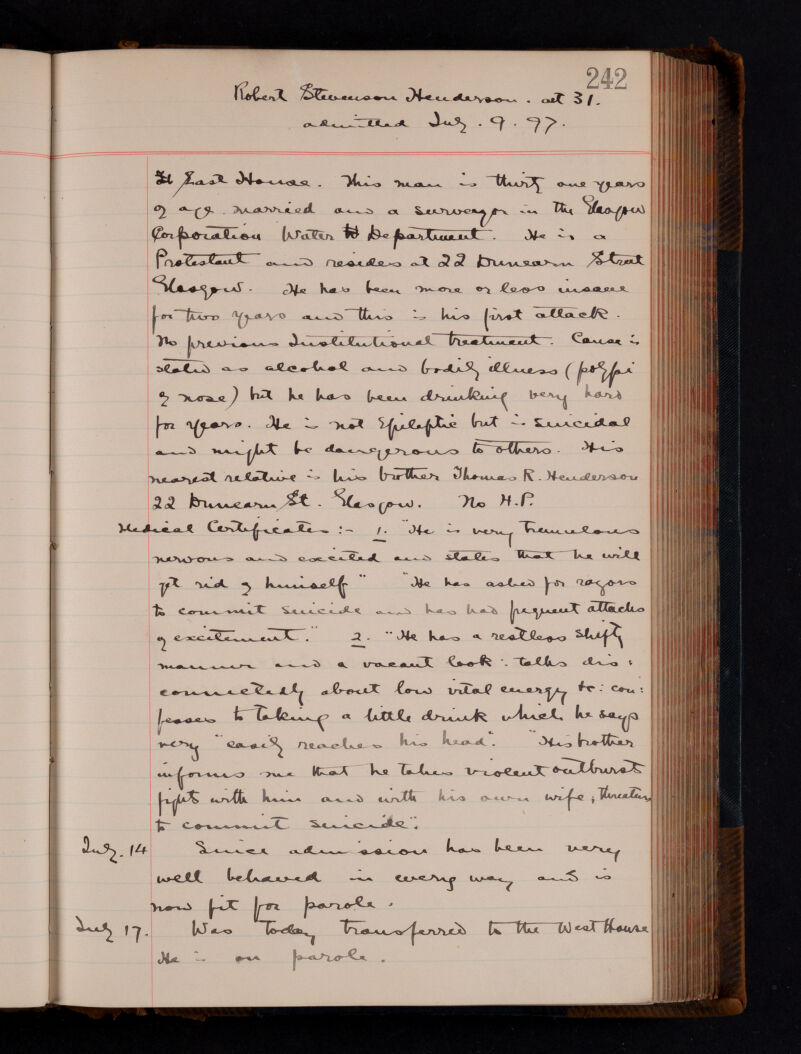 242
Robert Stevenson Henderson. aet 31.
admitted July. 9. 97.
East House. This man is thirty one years
of age married and a surveyor in the Glasgow
Corporation Water Department. He is a
Protestant and resides at 22 Dunearn Street
Glasgow. He has been more or less insane
for two years and this is his first attack.
No previous Institutional treatment. Cause is
stated as alcohol and bodily illness (polypi
of nose) but he has been drinking very hard
for years. He is not Epileptic but is suicidal
and might be dangerous to others. His
nearest relative is his brother Thomas R. Henderson
22 Dunearn St. Glasgow. No H.P.
Medical Certificates:- 1. "He is very tremulous
nervous and excited and states that he will
get rid of himself" "He has asked for razors
to commit suicide and has had frequent attacks
of excitement." 2. "He has a restless shifty
manner and a vacant look: talks dis:
connectedly about low vital energy &c: con:
fesses to taking a little drink which he says
very "easily reaches his head". "His brother
informs me that he takes violent outbursts
fights with him and with his own wife, threatens
to commit suicide".
July. 14 Since admission has been very
well behaved in every way and is
now fit for parole.
July 17. Was today transferred to the West House
He is on parole.